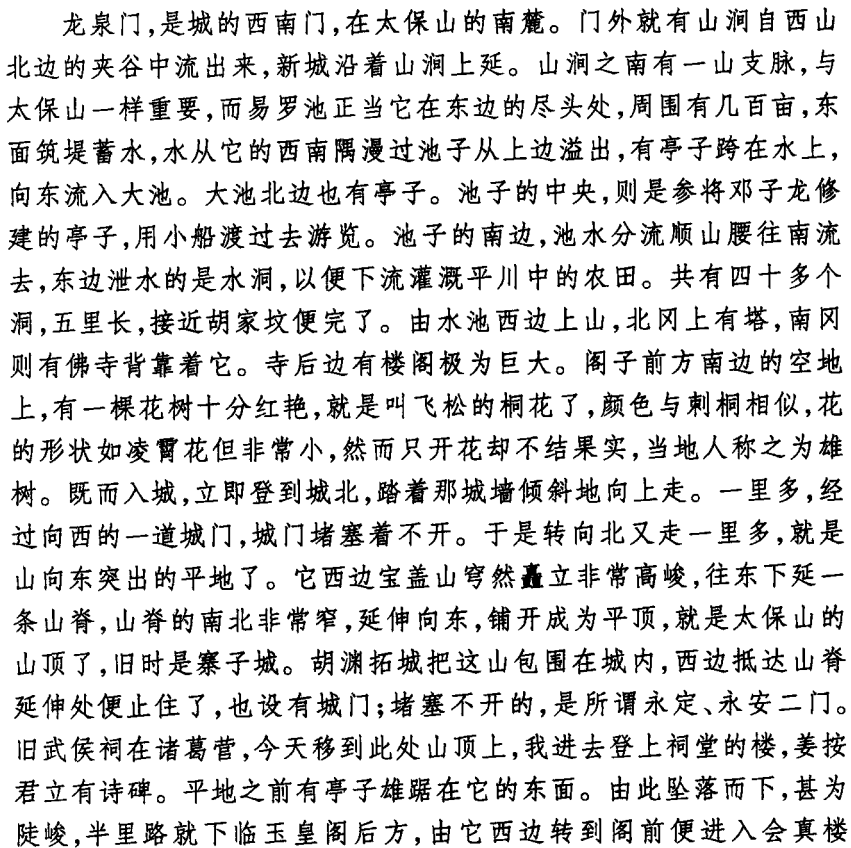 龙泉门,是城的西南门,在太保山的南麓。门外就有山涧自西山
北边的夹谷中流出来,新城沿着山涧上延。山涧之南有一山支脉,与
太保山一样重要,而易罗池正当它在东边的尽头处,周围有几百亩,东
面筑堤蓄水,水从它的西南隅漫过池子从上边溢出,有亭子跨在水上,
向东流入大池。大池北边也有亭子。池子的中央,则是参将邓子龙修
建的亭子,用小船渡过去游览。池子的南边,池水分流顺山腰往南流
去,东边泄水的是水洞,以便下流灌溉平川中的农田。共有四十多个
洞,五里长,接近胡家坟便完了。由水池西边上山,北冈上有塔,南冈
则有佛寺背靠着它。寺后边有楼阁极为巨大。阁子前方南边的空地
上,有一棵花树十分红艳,就是叫飞松的桐花了,颜色与刺桐相似,花
的形状如凌霄花但非常小,然而只开花却不结果实,当地人称之为雄
树。既而入城,立即登到城北,踏着那城墙倾斜地向上走。一里多,经
过向西的一道城门,城门堵塞着不开。于是转向北又走一里多,就是
山向东突出的平地了。它西边宝盖山穹然矗立非常高峻,往东下延一
条山脊,山脊的南北非常窄,延伸向东,铺开成为平顶,就是太保山的
山顶了,旧时是寨子城。胡渊拓城把这山包围在城内,西边抵达山脊
延伸处便止住了,也设有城门;堵塞不开的,是所谓永定、永安二门。
旧武侯祠在诸葛营,今天移到此处山顶上,我进去登上祠堂的楼,姜按
君立有诗碑。平地之前有亭子雄踞在它的东面。由此坠落而下,甚为
陡峻,半里路就下临玉皇阁后方,由它西边转到阁前便进入会真楼